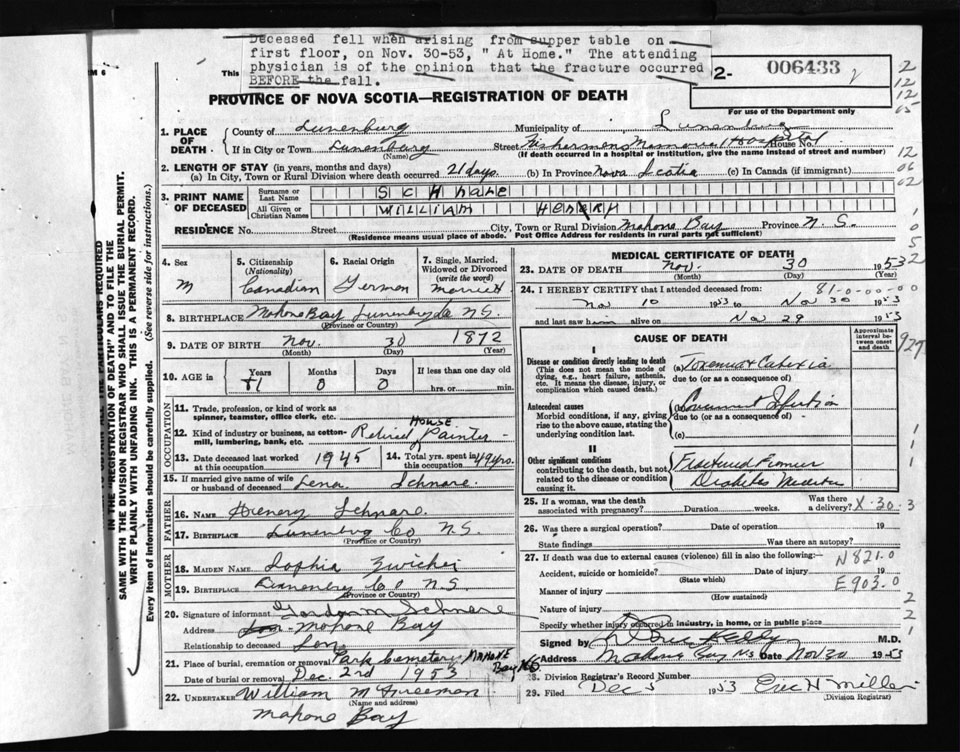 Deceased fell when arising from supper table on
first floor, on Nov. 30-53, " At Home." The attending
physician is of the opinion that the fracture occurred
BEFORE the fall.
This
2- 006433
For use of the Department only
PROVINCE OF NOVA SCOTIA—REGISTRATION OF DEATH
1. PLACE OF DEATH. County of Lunenburg Municipality of Lunenburg
If in City or Town Lunenburg (Name) Street Fishermens Memorial Hospital House No.
(If death occurred in a hospital or institution, give the name instead of street and number)
2. LENGTH OF STAY (in years, months and days)
(a) In City, Town or Rural Division where death occurred 21 days. (b) In Province Nova Scotia (c) In Canada (if immigrant)
3. PRINT NAME OF DECEASED Surname or Last Name SCHNARE
All Given or Christian Names WILLIAM HENRY
RESIDENCE No. Street City, Town or Rural Division Mahone Bay Province N. S.
(Residence means usual place of abode. Post Office Address for residents in rural parts not sufficient)
4. Sex M
5. Citizenship (Nationality) Canadian
6. Racial Origin German
7. Single, Married, Widowed or Divorced (write the word) Married
8. BIRTHPLACE Mahone Bay Lunenburg Co N.S.
(Province or Country)
9. DATE OF BIRTH Nov. 30 1872
(Month) (Day) (Year)
10. AGE in Years 81 Months 0 Days 0 If less than one day old hrs. or min.
OCCUPATION
11. Trade, profession, or kind of work as spinner, teamster, office clerk, etc.
12. Kind of industry or business, as cotton-mill, lumbering, bank, etc. Retired House Painter
13. Date deceased last worked at this occupation 1945
14. Total yrs. spent in this occupation 49 yrs.
15. If married give name of wife or husband of deceased Lena Schnare.
FATHER
16. NAME Henery Schnare
17. BIRTHPLACE Lunenburg Co N.S.
(Province or Country)
MOTHER
18. MAIDEN NAME Sophia Zwicker
19. BIRTHPLACE Lunenburg Co N.S.
(Province or Country)
20. Signature of informant Gordon M Schnare
Address Mahone Bay
Relationship to deceased Son
21. Place of burial, cremation or removal Park Cemetery MAHONE Bay NS
Date of burial or removal Dec. 2nd 1953
22. UNDERTAKER William M Freeman
(Name and address)
Mahone Bay
MEDICAL CERTIFICATE OF DEATH
23. DATE OF DEATH Nov. 30 1953
(Month) (Day) (Year)
81-0-00-00
24. I HEREBY CERTIFY that I attended deceased from:
Nov 10 1953 to Nov 30 1953
and last saw him alive on Nov 29 1953
CAUSE OF DEATH
Approximate interval between onset and death
I
Disease or condition directly leading to death
(This does not mean the mode of dying, e.g., heart failure, asthenia, etc. It means the disease, injury, or complication which caused death.)
(a) Toxemia &
due to (or as a consequence of)
Antecedent causes
Morbid conditions, if any, giving rise to the above cause, stating the underlying condition last.
(b)
due to (or as a consequence of)
(c)
II
Other significant conditions
contributing to the death, but not related to the disease or condition causing it.
Fractured Femur
Diabetes
25. If a woman, was the death associated with pregnancy? Duration weeks. Was there a delivery? X-30-3
26. Was there a surgical operation? Date of operation 19
State findings Was there an autopsy?
27. If death was due to external causes (violence) fill in also the following:— N821.0
Accident, suicide or homicide? Date of injury 19
(State which)
E903.0
Manner of injury
(How sustained)
Nature of injury
Specify whether injury occurred in industry, in home, or in public place
Signed by Kelly M.D.
Address Mahone Bay NS Date Nov 30 1953
28. Division Registrar's Record Number
29. Filed Dec 5 1953 Eric H Miller
(Division Registrar)
SAME WITH THE DIVISION REGISTRAR WHO SHALL ISSUE THE BURIAL PERMIT.
WRITE PLAINLY WITH UNFADING INK. THIS IS A PERMANENT RECORD.
Every item of information should be carefully supplied. (See reverse side for instructions.)
IN THE "REGISTRATION OF DEATH" AND TO FILE THE